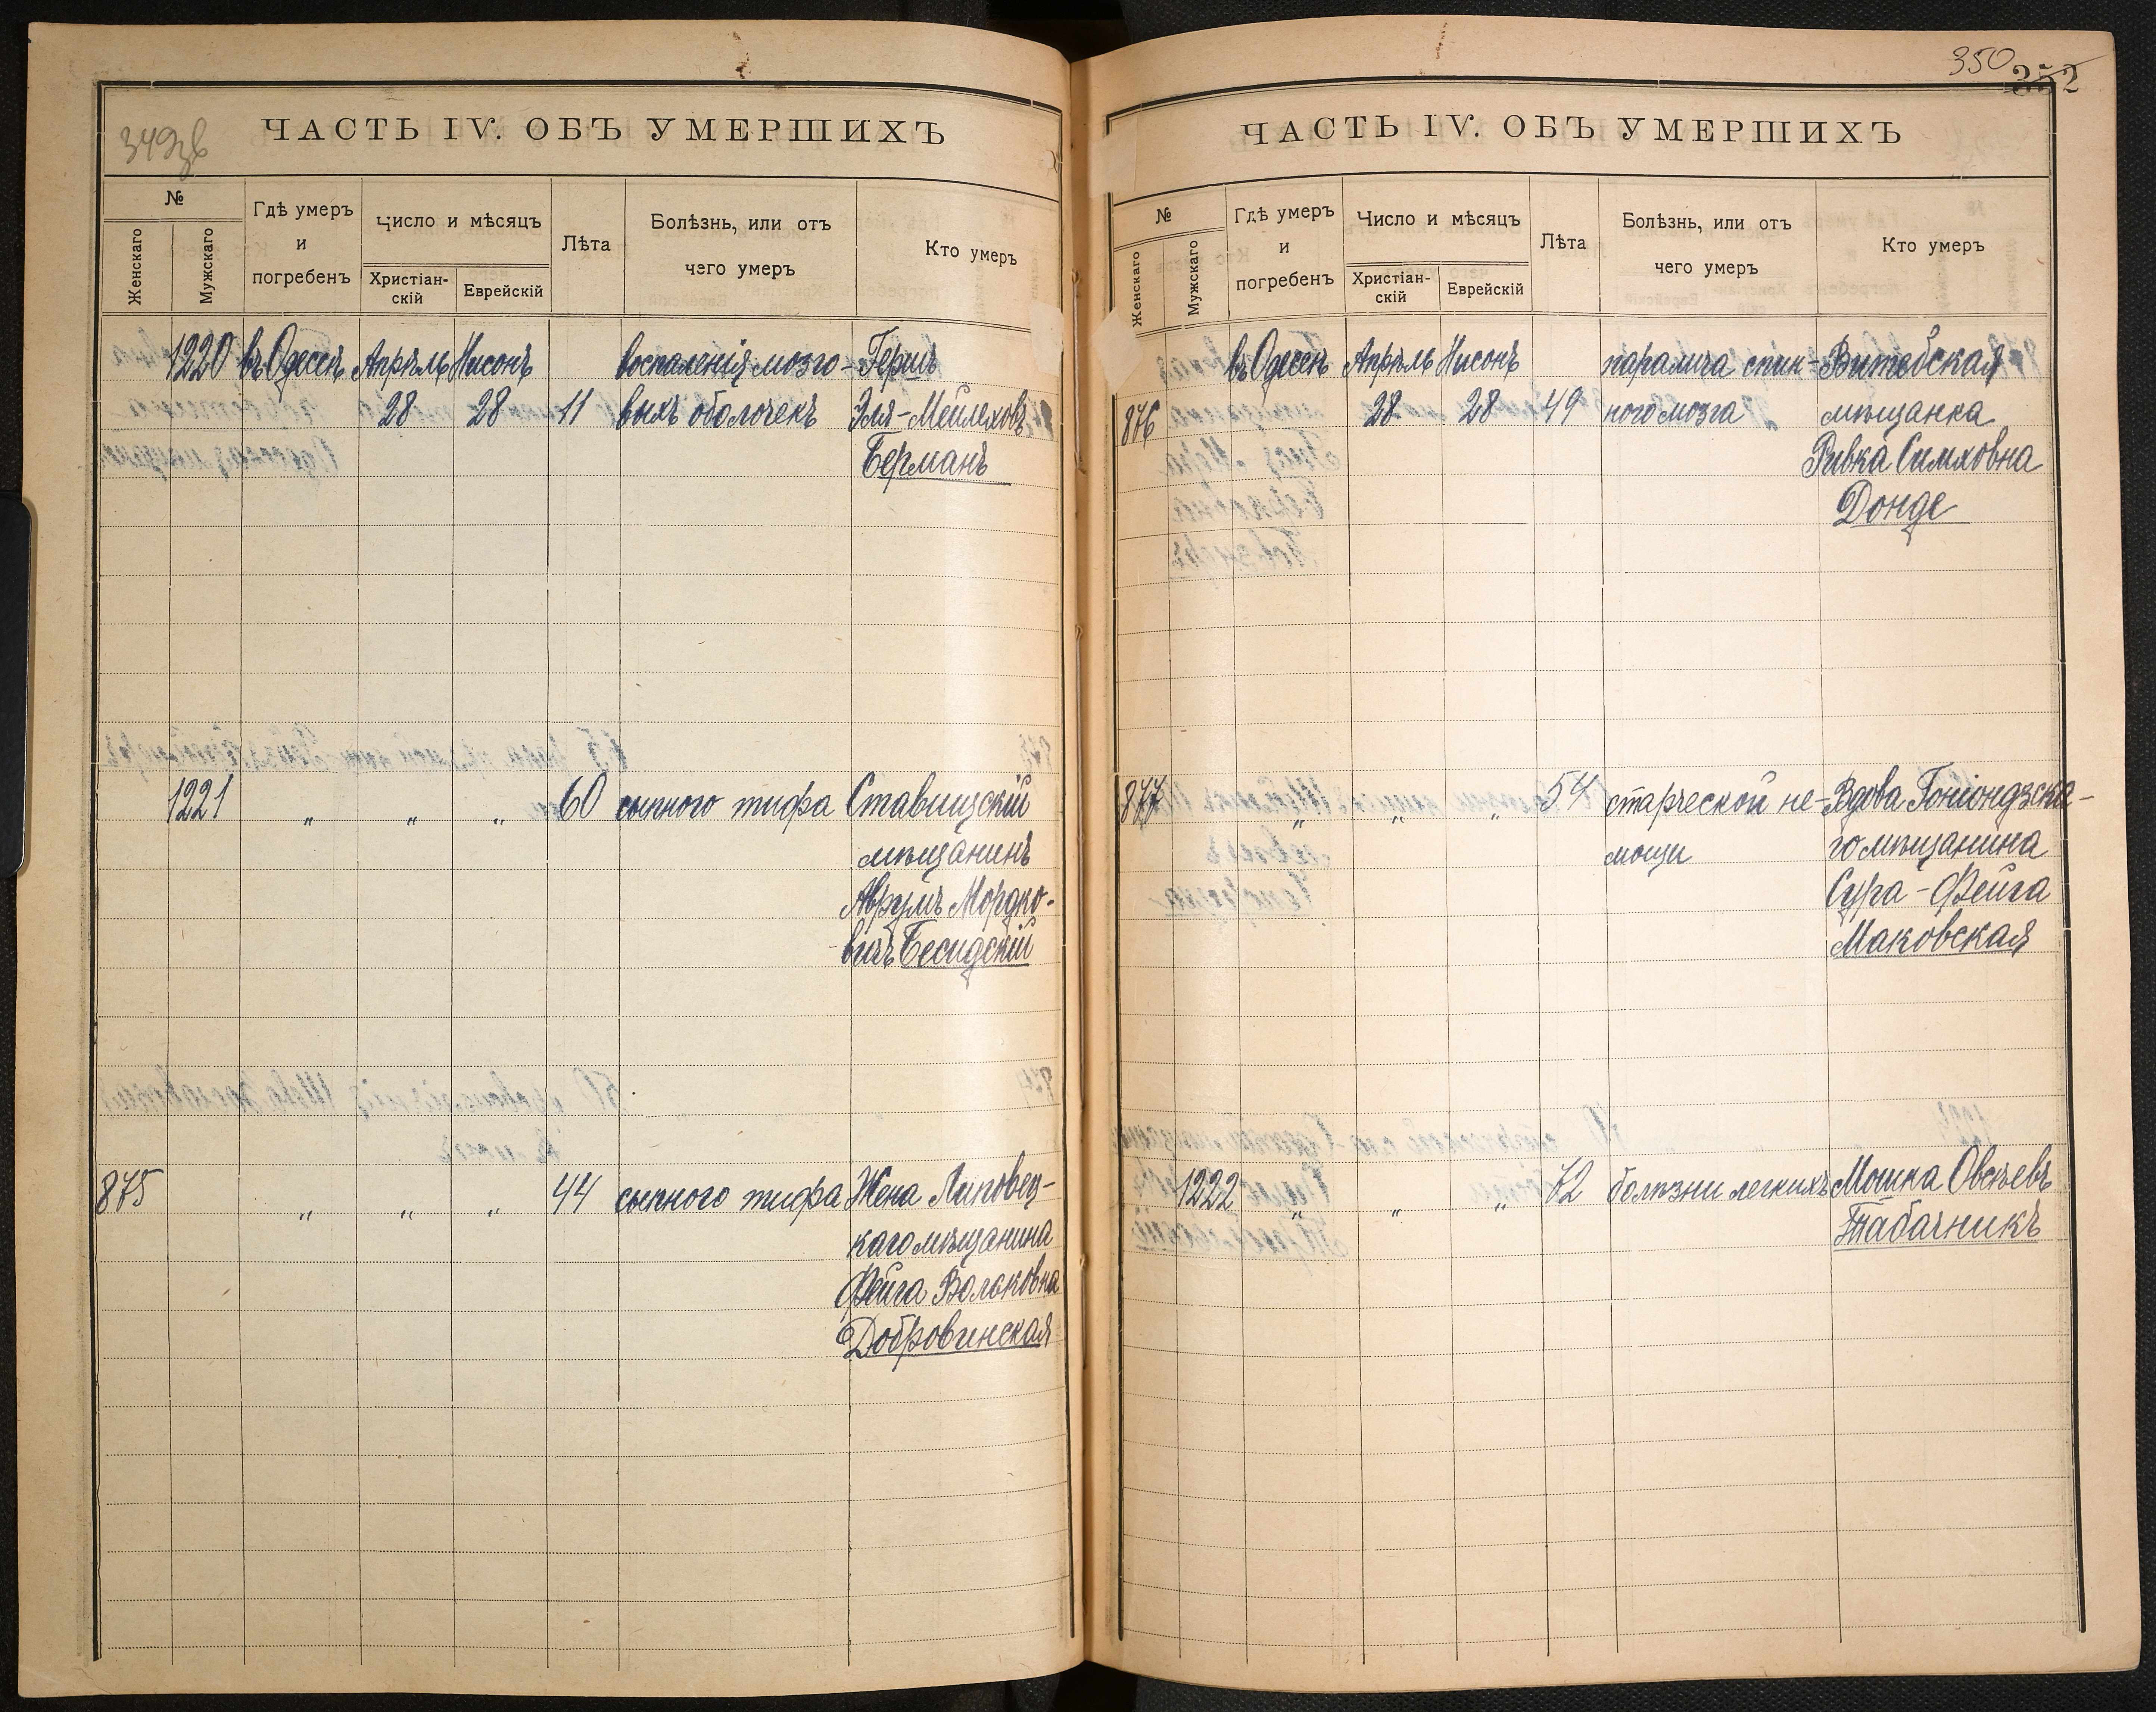 349зв
ЧАСТЬ IV. ОБЪ УМЕРШИХЪ
№
Женскаго
Мужскаго
Гдѣ умеръ
и
погребенъ
Число и мѣсяцъ
Христіан-
скій
Еврейскій
Лѣта
Болѣзнь, или отъ
чего умеръ
Кто умеръ
1220 въ Одессѣ Апрѣль Нисонъ воспаленія мозго- Гершъ
28 28 11 выхъ оболочекъ Эля-Мейлеховъ
Берманъ
1221 " " " 60 сыпного тифа Ставищскій
мѣщанинъ
Аврумъ Мордко-
вичъ Бесидскій
875 " " " 44 сыпного тифа Жена Липовец-
каго мѣщанина
Фейга Вольковна
Добровинская
350
352
ЧАСТЬ IV. ОБЪ УМЕРШИХЪ
№
Женскаго
Мужскаго
Гдѣ умеръ
и
погребенъ
Число и мѣсяцъ
Христіан-
скій
Еврейскій
Лѣта
Болѣзнь, или отъ
чего умеръ
Кто умеръ
въ Одессѣ Апрѣль Нисонъ паралича спин- Витебская
876 28 28 49 ного мозга мѣщанка
Ривка Симховна
Донде
877 " " " 54 старческой не- Вдова Гоніондзска-
мощи го мѣщанина
Сура-Фейга
Маковская
1222 " " " 72 болѣзни легкихъ Мошка Овсѣевъ
Табачникъ